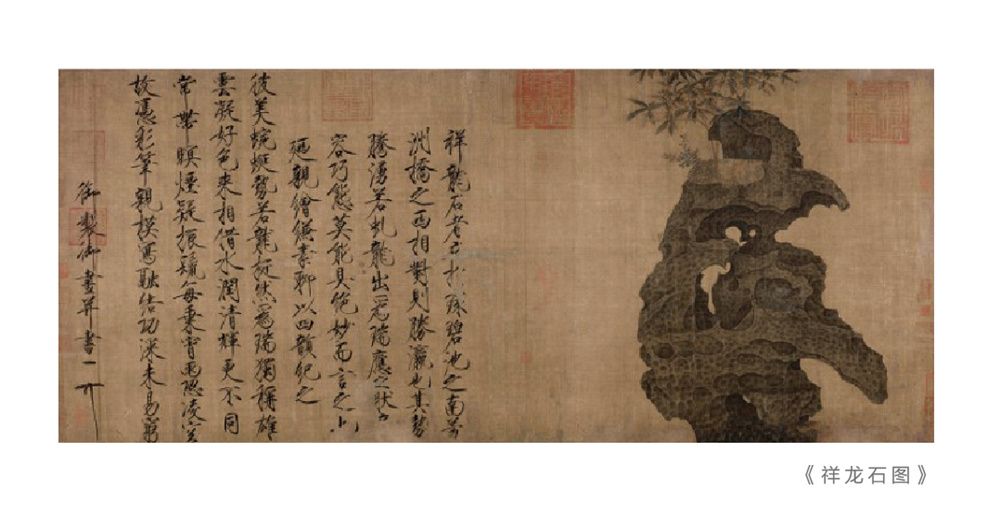 祥龍石者立於環碧池之南芳
洲橋之西相對則勝瀛也其勢
騰湧若虬龍出為瑞應之狀奇
容巧態莫能具絕妙而言之也
廼親繪縑素聊以四韻紀之
彼美蜿蜒勢若龍挺然為瑞獨稱雄
雲凝好色來相借水潤清輝更不同
常帶暝煙疑振鬣每乘宵雨恐凌空
故憑彩筆親模寫融結功深未易窮
御製御畫并書
《祥龙石图》